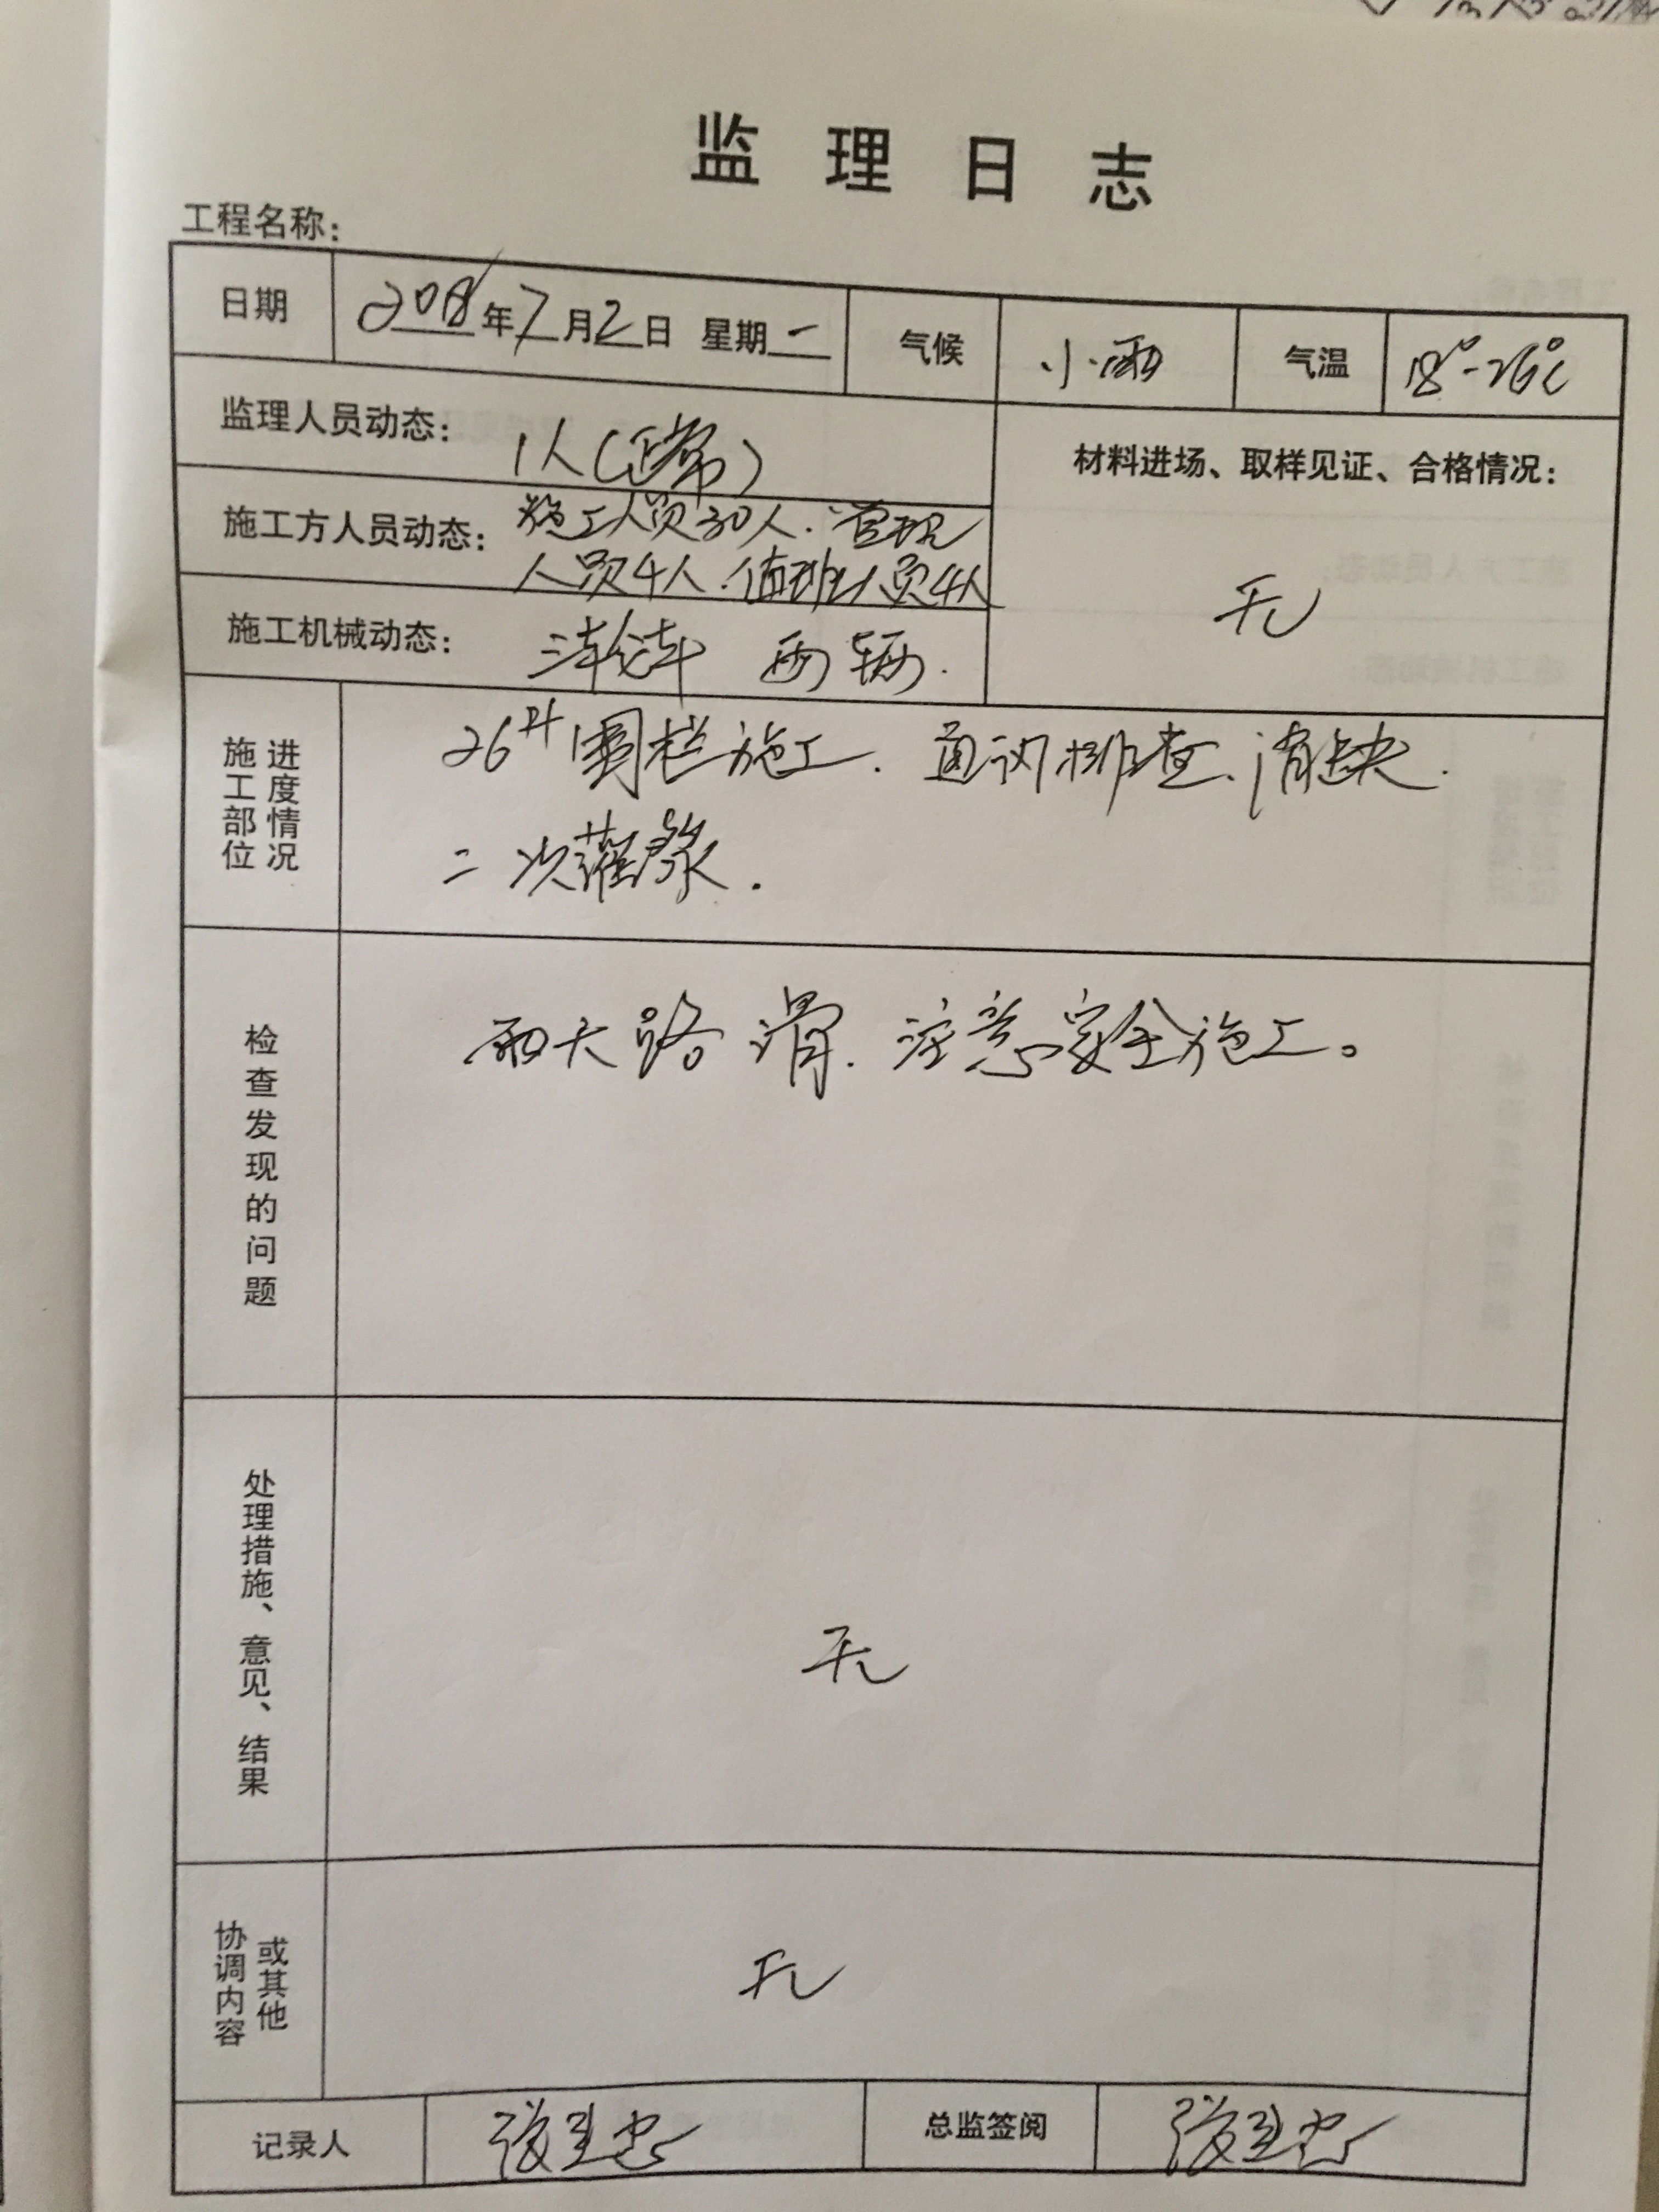 监理日志
工程名称：
日期 2018年7月2日 星期一 气候 小雨 气温 18°-26℃
监理人员动态： 1人（正常）
材料进场、取样见证、合格情况：
无
施工方人员动态： 施工人员30人．管理
人员4人．值班人员4人
施工机械动态： 两辆．
施工部位 进度情况
26# 围栏施工．通讯排查、消缺．
二次灌浆．
检查发现的问题
雨天路滑．注意安全施工。
处理措施、意见、结果
无
协调内容 或其他
无
记录人 张 忠 总监签阅 张 忠